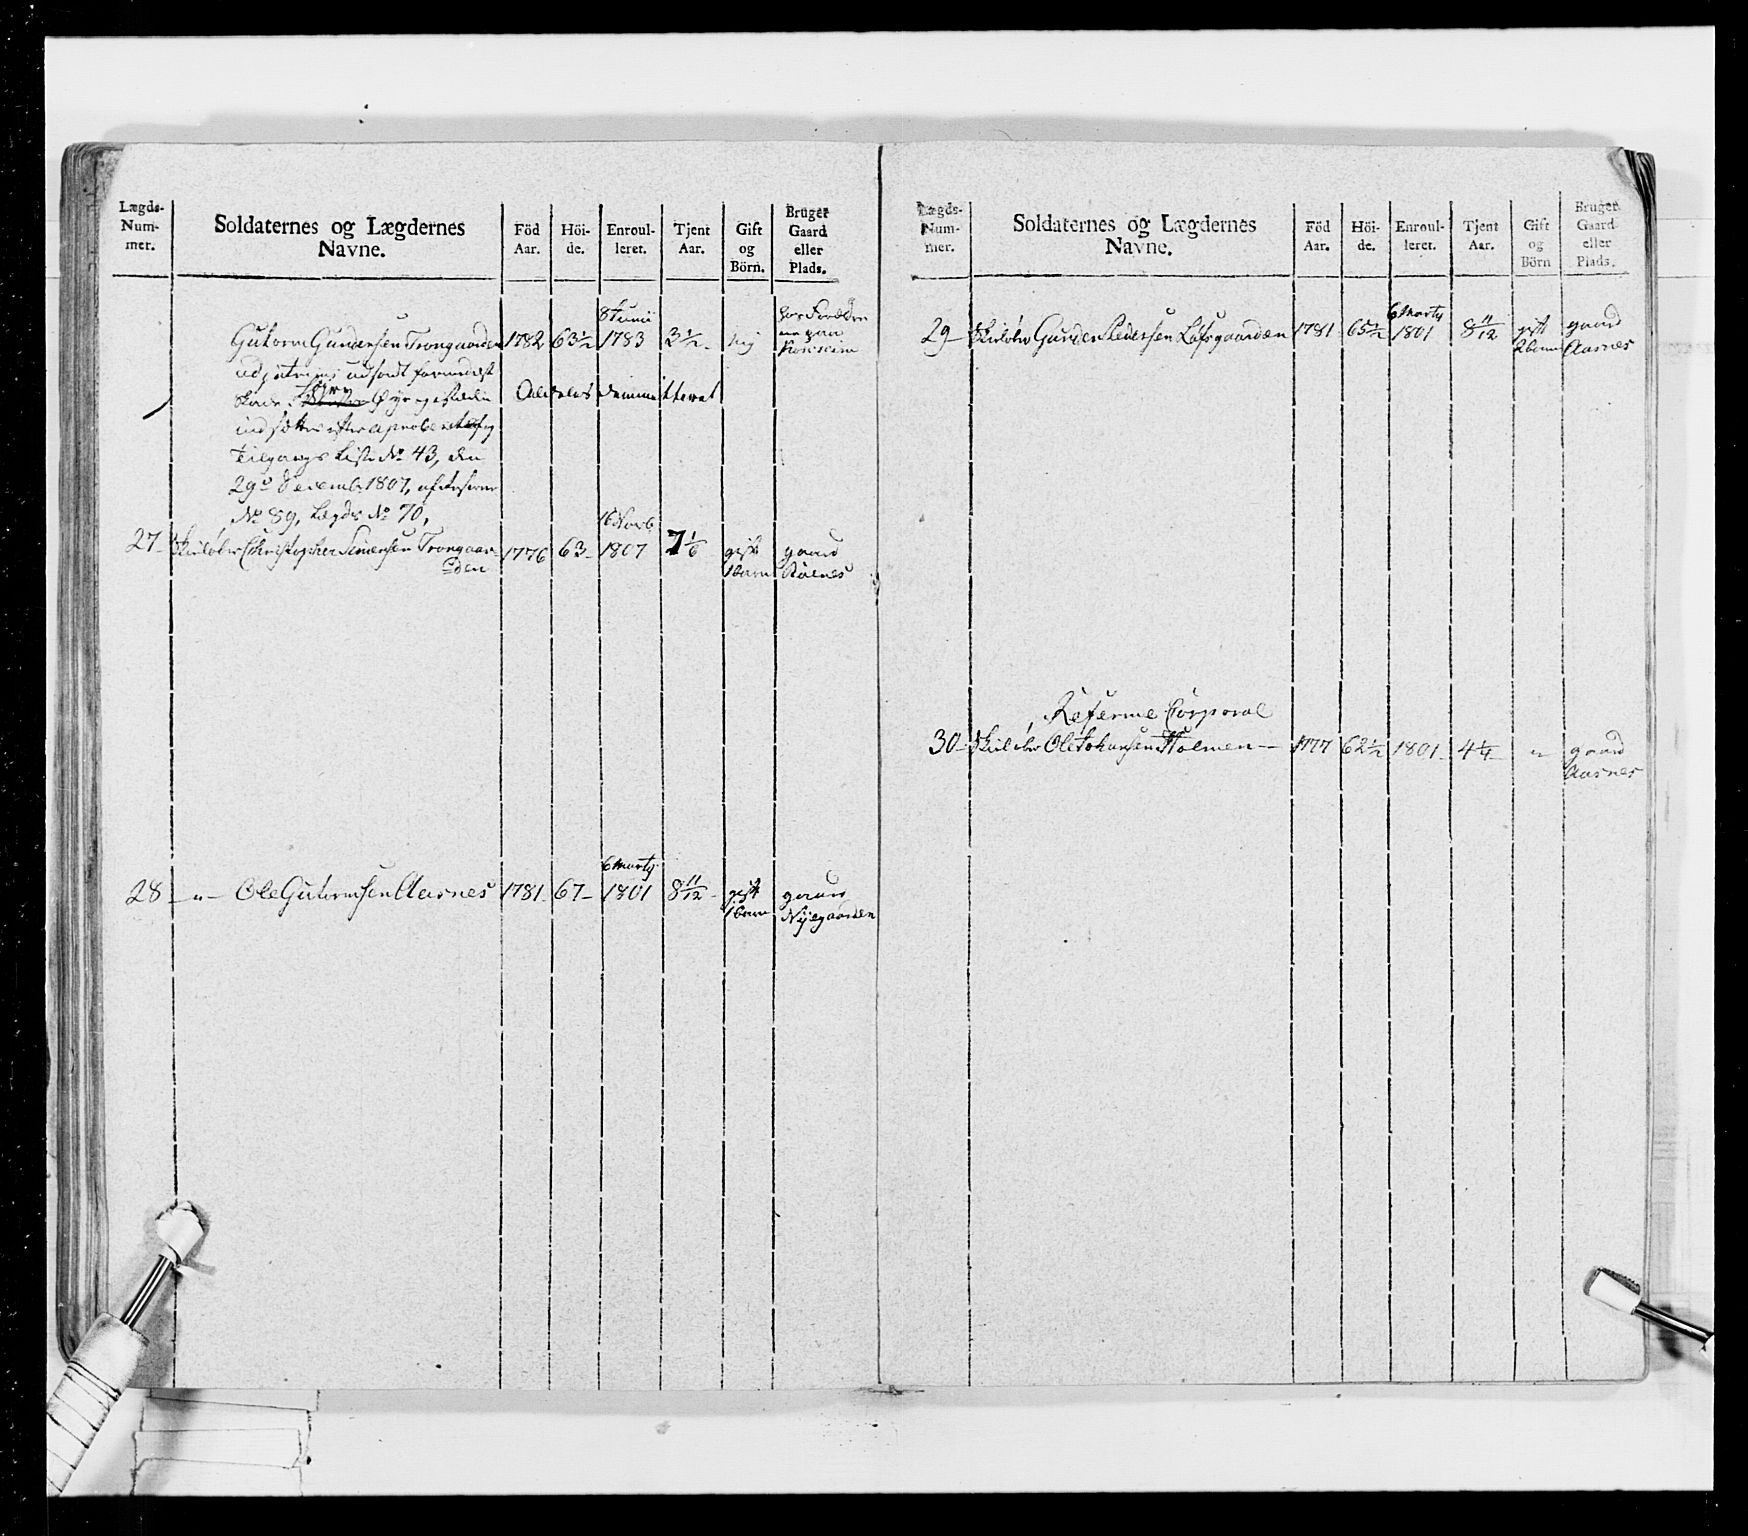 Lægds-
Num-
mer.
Soldaternes og Lægdernes
Navne.
Föd
Aar.
Höi-
de.
Enroul-
leret.
Tjent
Aar.
Gift
og
Börn.
Bruger
Gaard
eller
Plads.
8 Junii
Gutorm Gundersen Trongaarden 1782 63½ 1783 3½
Aldeles demmitteret
Tilgangs Liste No 43, den
29de Decemb. 1807,
No 89, Lægds No 70,
16 Novb
27 Skielöber Christopher Simensen Trongaar-
den 1776 63 1807 7 1/6 gift
1 barn
gaard
6 Marty
28 - " - Ole Gutormsen Aasnes 1781 67 1801 8 11/12 gift
1 barn
gaard
Nyegaarden
Lægds-
Num-
mer.
Soldaternes og Lægdernes
Navne.
Föd
Aar.
Höi-
de.
Enroul-
leret.
Tjent
Aar.
Gift
og
Börn
Bruger
Gaard
eller
Plads.
6 Marty
29 Skielöber Gunder Pedersen Löfsgaarden 1781 65½ 1801 8 11/12 gift
2 börn
gaard
Aasnes
Reserme Corporal
30 Skielöber Ole Johansen Holmen 1777 62½ 1801 4¼ " gaard
Aasnes